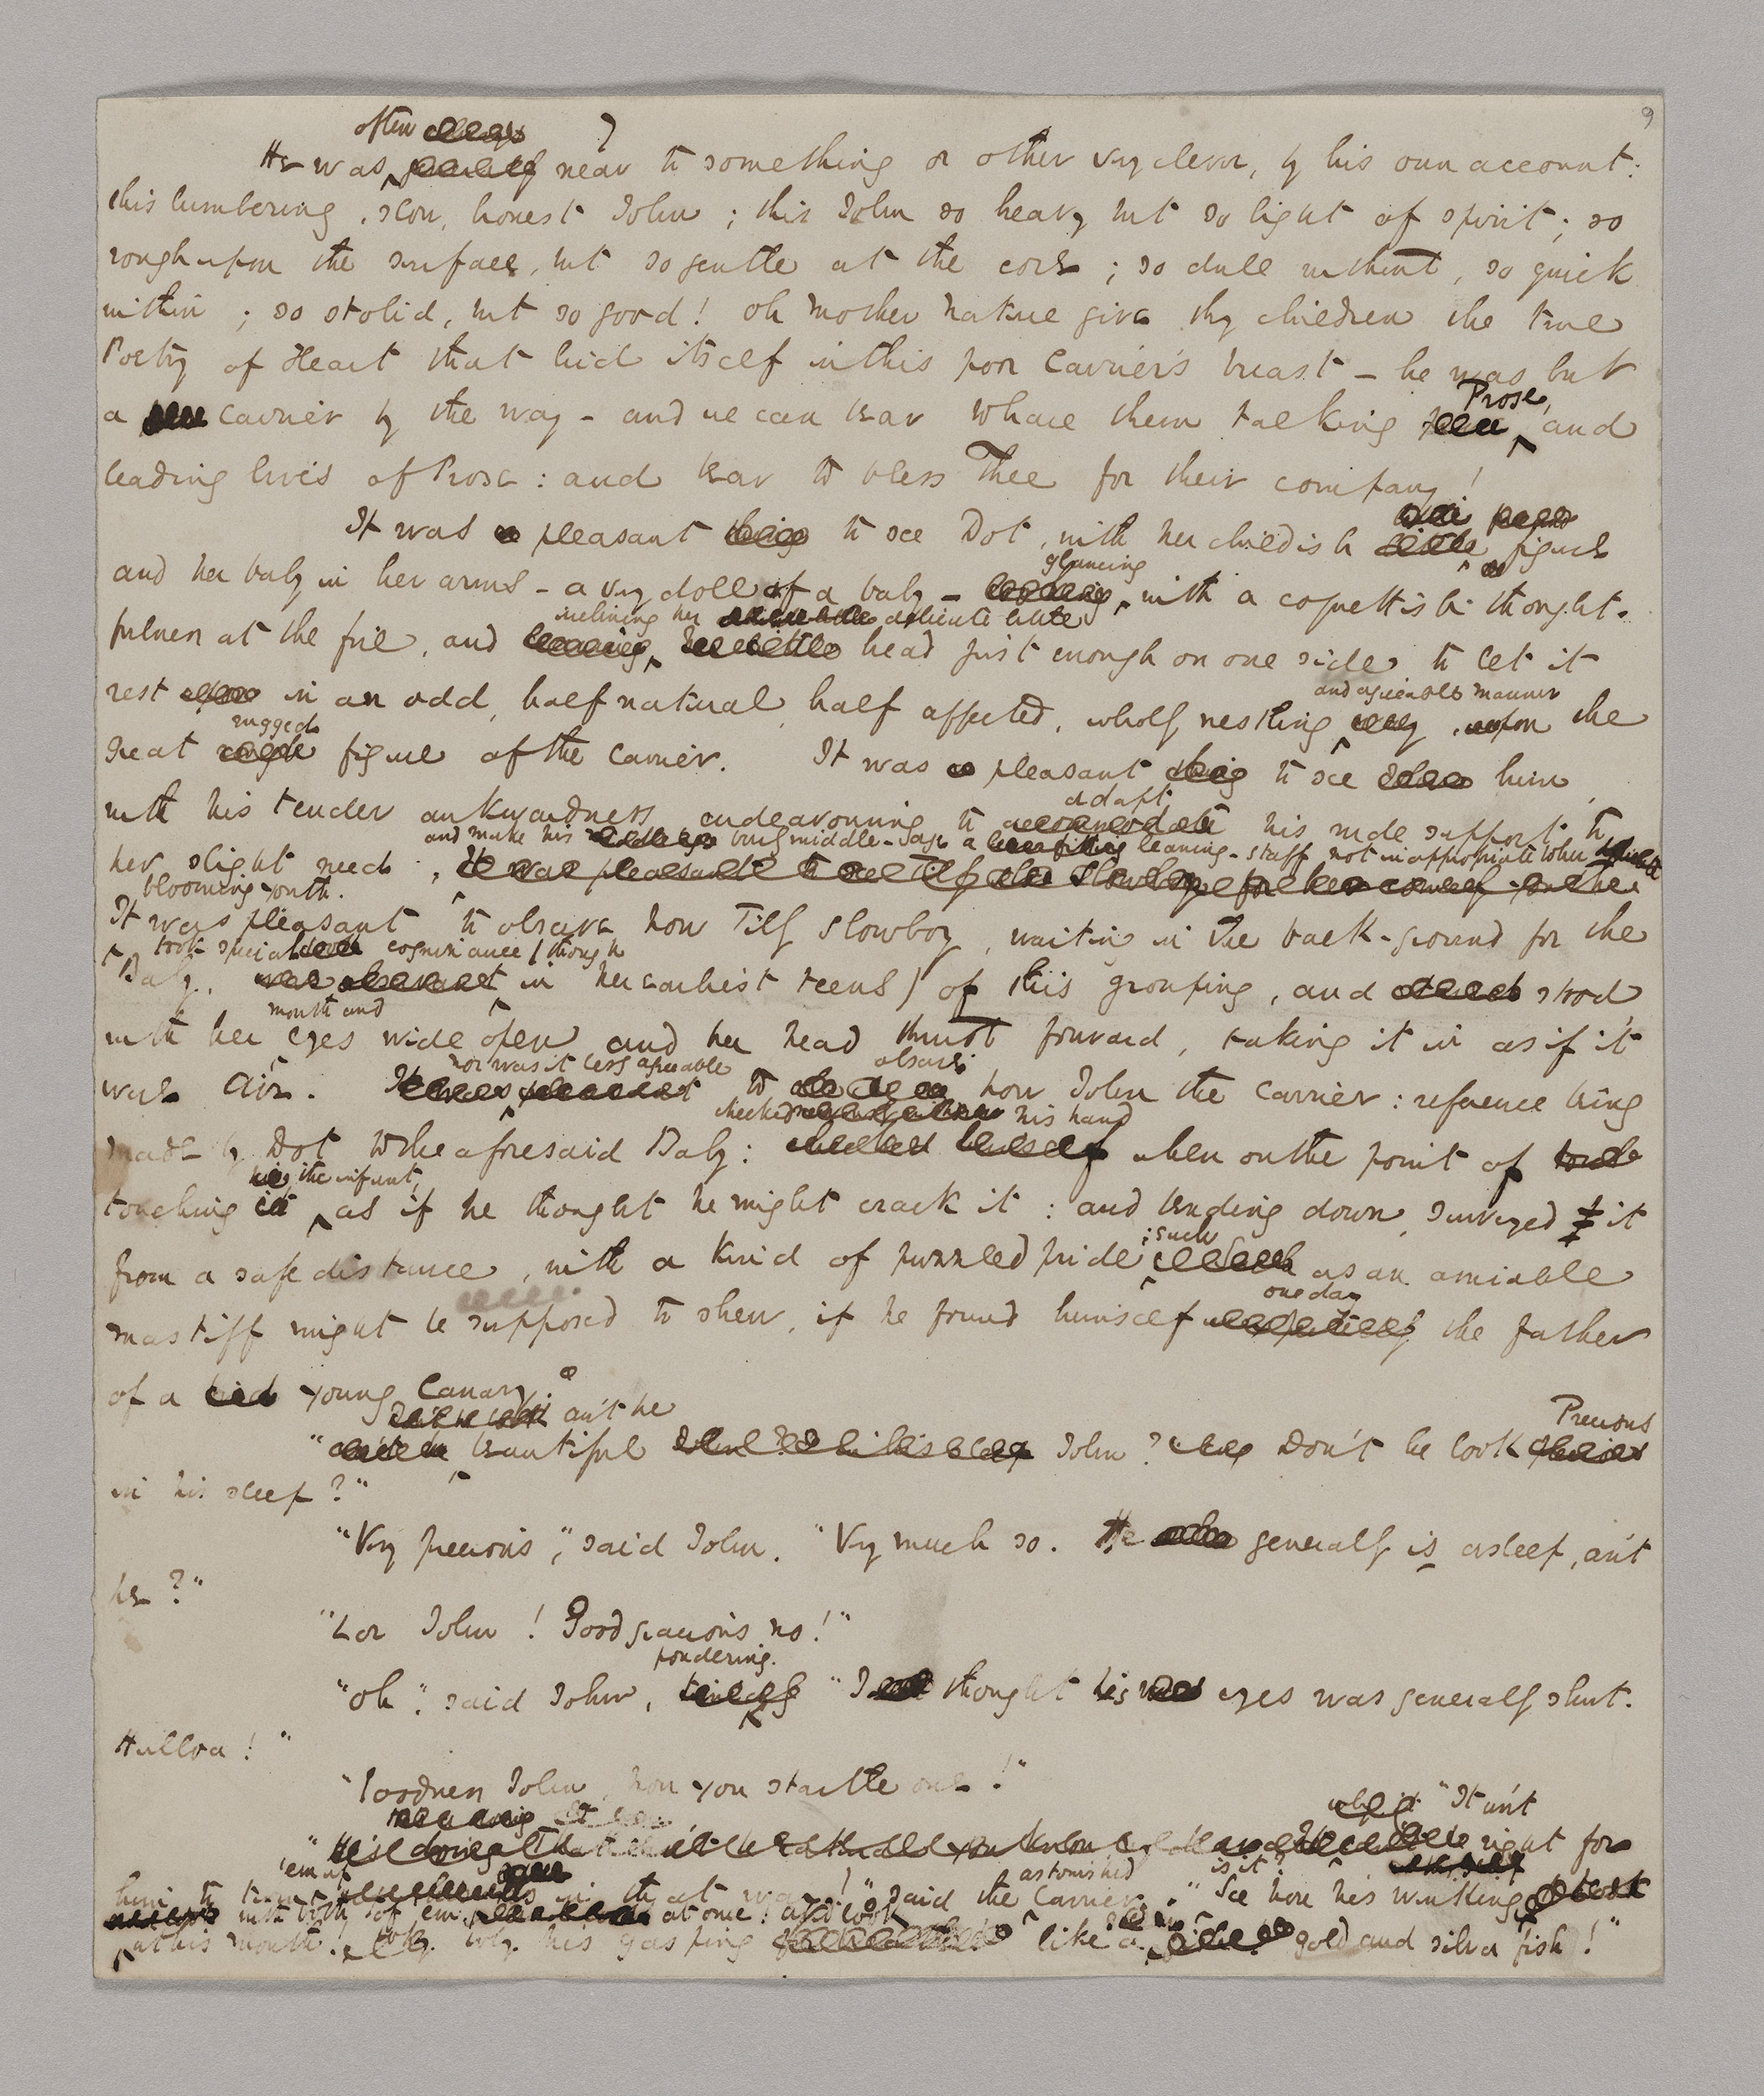 9
often
He was near to something or other very clever, by his own account:
this lumbering, slow, honest John; this John so heavy but so light of spirit; so
rough upon the surface, but so gentle at the core; so dull without, so quick
within; so stolid, but so good! oh Mother Nature give thy children the true
Poetry of Heart that hid itself in this poor Carrier's breast – he was but
a Carrier by the way – and we can bear to have them talking Prose, and
leading lives of Prose: and bear to bless Thee for their company!
It was pleasant to see Dot, with her childish figure
and her baby in her arms – a very doll of a baby – glancing with a coquettish thought-
fulness at the fire, and inclining her delicate little head just enough on one side to let it
rest in an odd, half natural, half affected, wholly nestling and agreeable manner, upon the
great rugged figure of the Carrier. It was pleasant to see him,
with his tender awkwardness, endeavouring to adapt his rude support to
her slight need; and make his burly middle-age a leaning-staff not inappropriate to her
blooming youth.
It was pleasant to observe how Tilly Slowboy, waiting in the back-ground for the
Baby, took special cognizance (though in her earliest teens) of this grouping, and stood
with her mouth and eyes wide open, and her head thrust forward, taking it in as if it
were air. Nor was it less agreeable to observe how John the Carrier: reference being
made by Dot to the aforesaid Baby: checked his hand when on the point of
touching the infant, as if he thought he might crack it: and bending down, surveyed it
from a safe distance, with a kind of puzzled pride: such as an amiable
mastiff might be supposed to shew, if he found himself one day the father
of a young Canary.
"an't he beautiful John? Don't he look Precious
in his sleep?"
"Very precious," said John. "Very much so. He generally is asleep, an't
he?"
"Lor John! Good gracious no!"
"Oh," said John, pondering. "I thought his eyes was generally shut.
Hulloa!"
"Goodness John, how you startle one!"
"It an't right for
him to turn 'em up in that way!" said the astonished Carrier, "is it? See how he's winking
with both of 'em at once! and look
at his mouth! Why he's gasping like a gold and silver fish!"